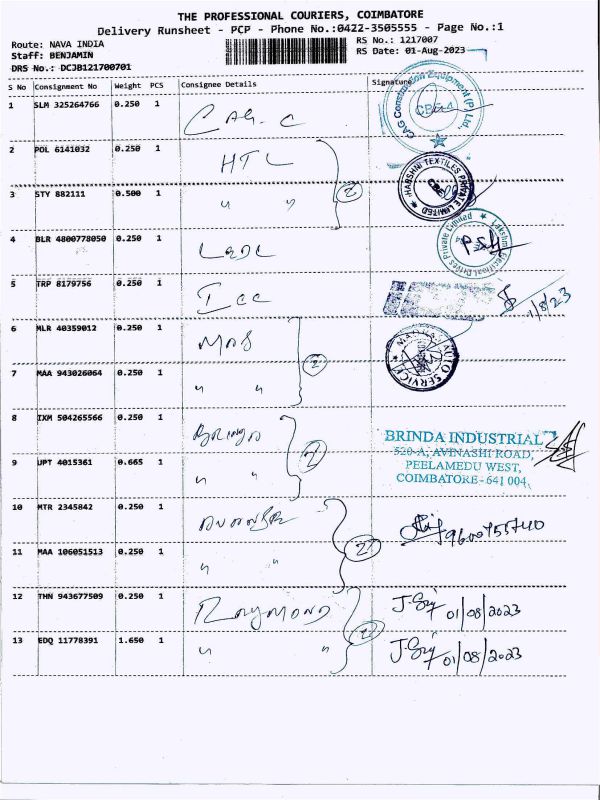 THE PROFESSIONAL COURIERS, COIMBATORE
Delivery Runsheet - PCP - Phone No.:0422-3505555 - Page No.:1
Route: NAVA INDIA
Staff: BENJAMIN
DRS No.: DCJB121700701
RS No.: 1217007
RS Date: 01-Aug-2023
S No Consignment No Weight PCS Consignee Details Signature
1 SLM 325264766 0.250 1 CAG. C
CAG Construction Equipment (P) Ltd.,
CBE-4
2 POL 6141032 0.250 1 HTL
HARSHNI TEXTILES PRIVATE LIMITED
3 STY 882111 0.500 1 " " 2
4 BLR 4800778050 0.250 1 LEDL
Lakshmi Electrical Drives Private Limited
5 TRP 8179756 0.250 1 ICC
1/8/23
6 MLR 40359012 0.250 1 MAS
AUTO SERVICE
7 MAA 943026064 0.250 1 " " 2
8 IXM 504265566 0.250 1
BRINDA INDUSTRIAL
520-A, AVINASHI ROAD,
PEELAMEDU WEST,
COIMBATORE - 641 004.
9 UPT 4015361 0.665 1 " " 2
10 MTR 2345842 0.250 1
11 MAA 106051513 0.250 1 " " 2
12 THN 943677509 0.250 1 RAYMOND 01/08/2023
13 EDQ 11778391 1.650 1 " " 2 01/08/2023